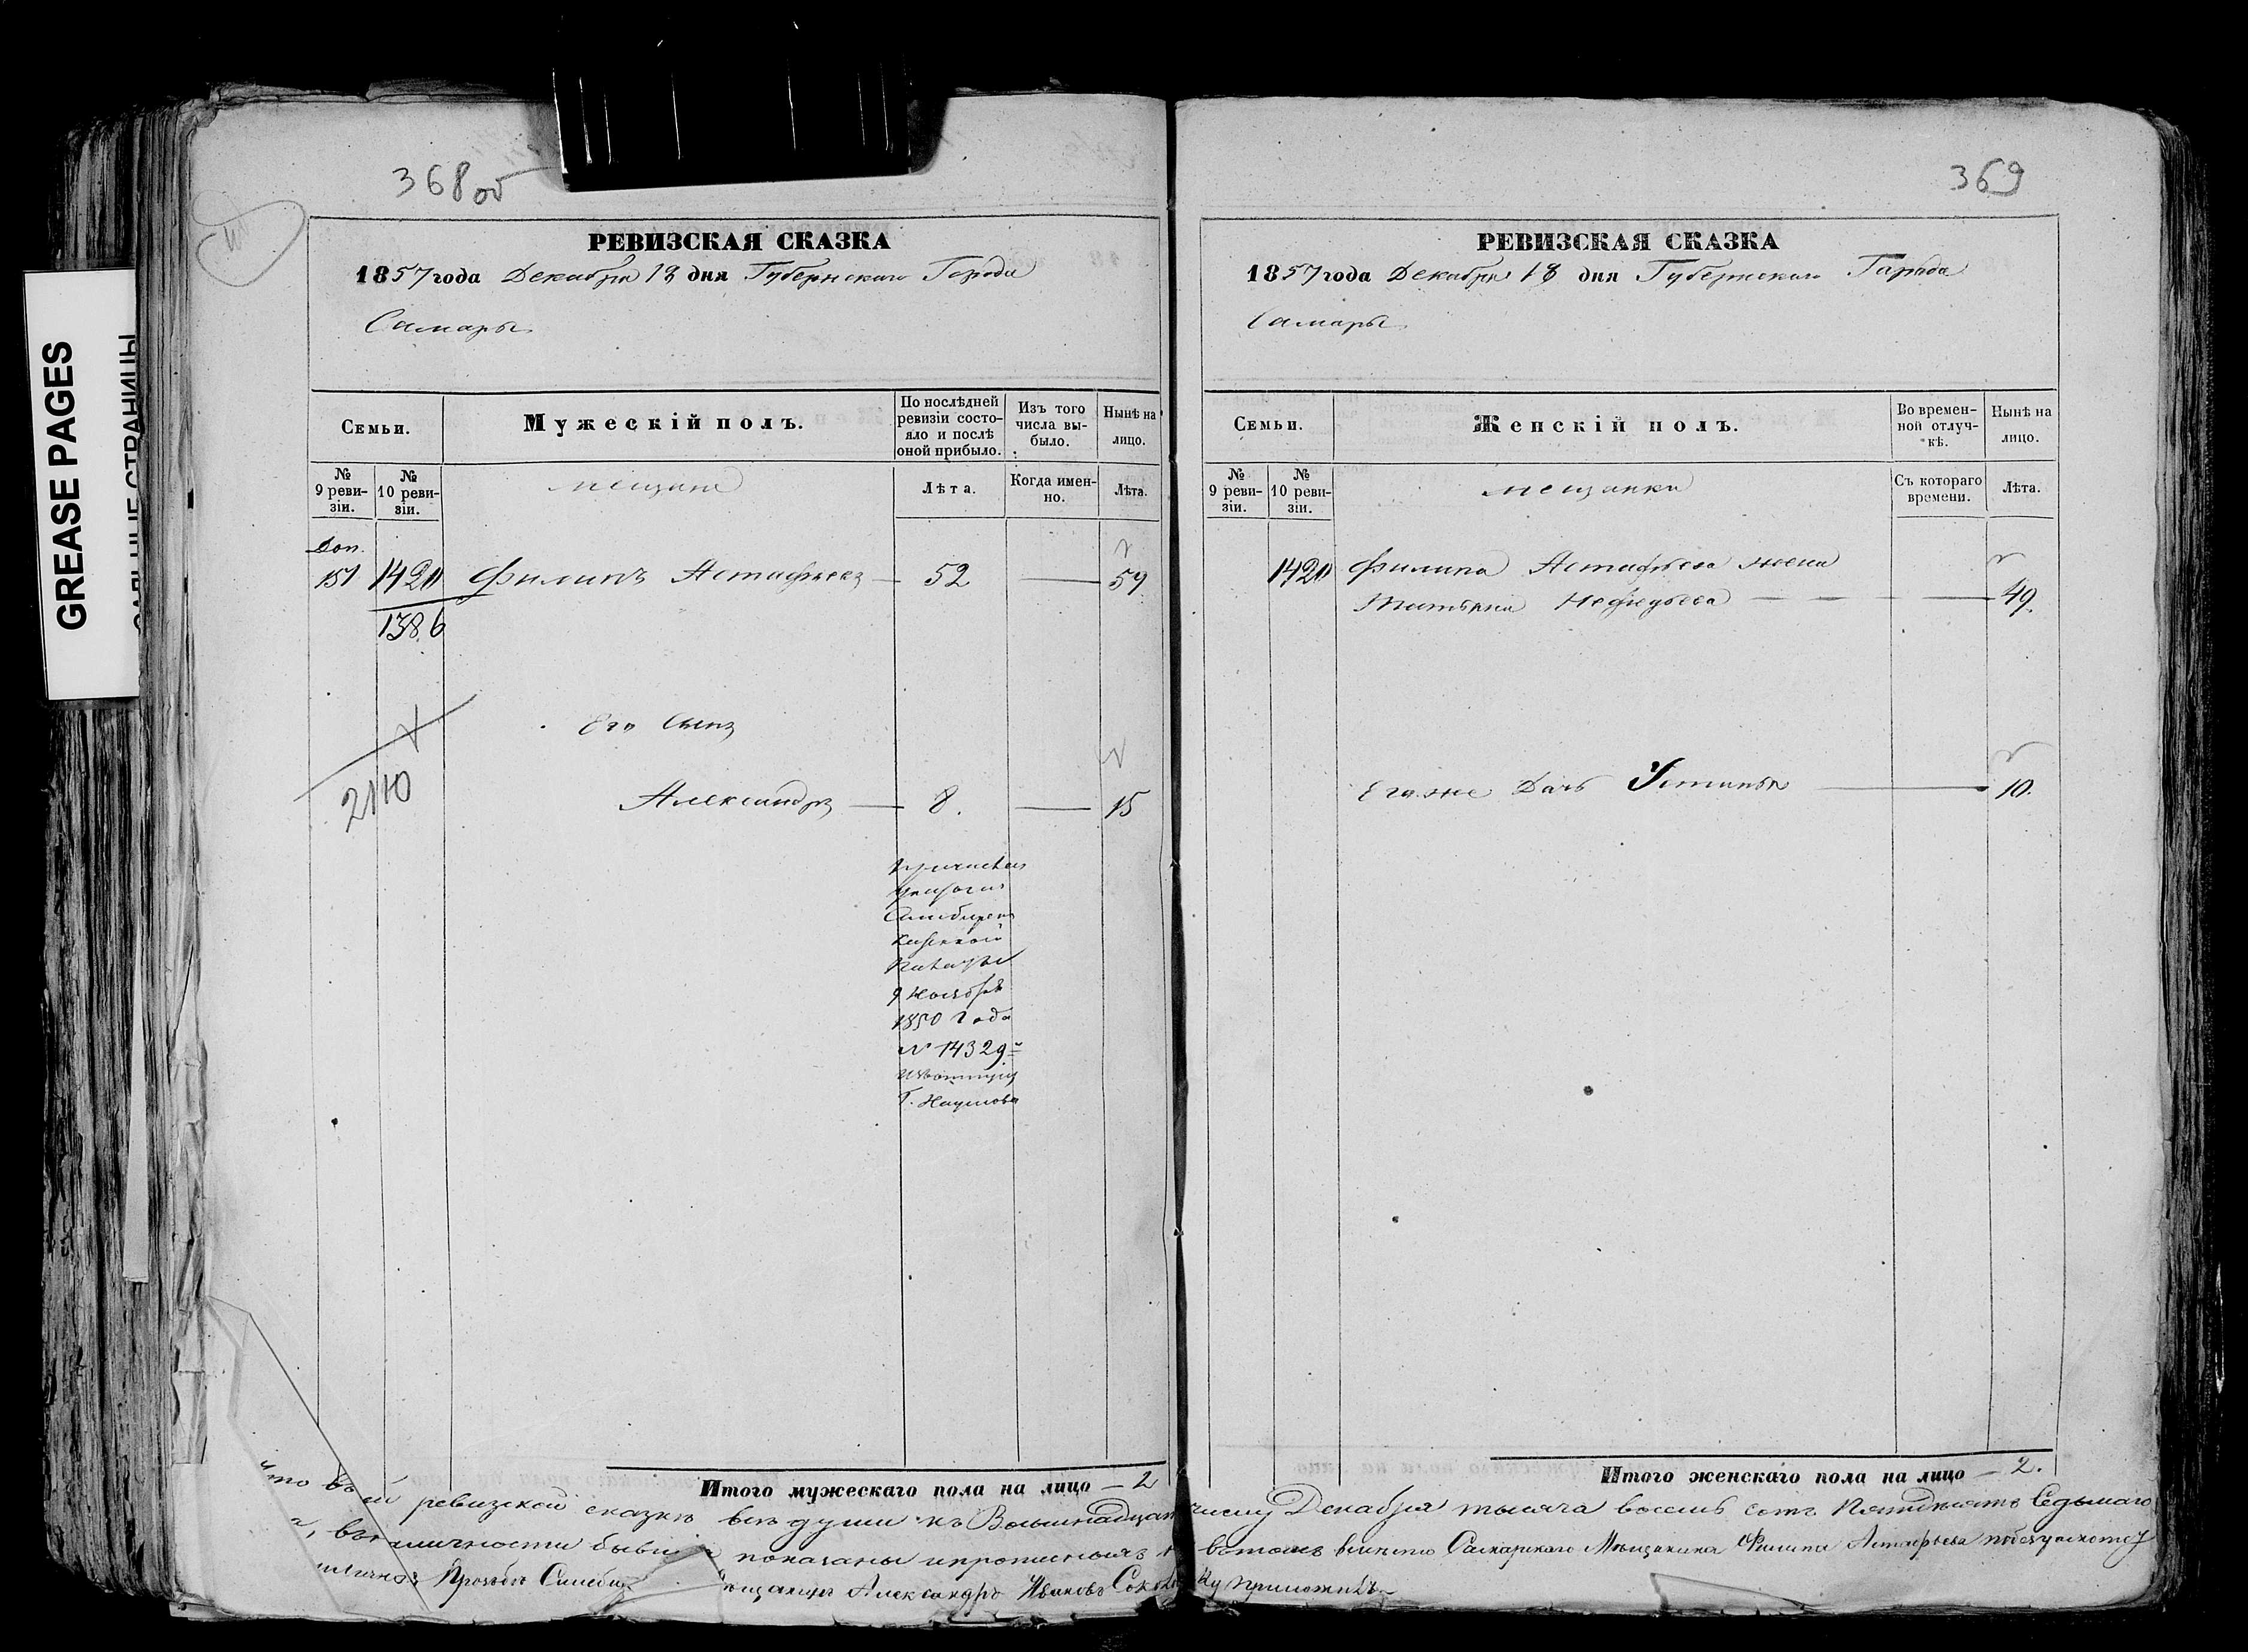 368 об
РЕВИЗСКАЯ СКАЗКА
1857 года Декабря 18 дня Губернскаго Города
Самары
Семьи.
Мужескій полъ.
По послѣдней ревизіи состояло и послѣ оной прибыло.
Изъ того числа выбыло.
Нынѣ на лицо.
№ 9 ревизіи.
№ 10 ревизіи.
мещане
Лѣта.
Когда именно.
Лѣта.
Доп.
151 1420 Филипъ Астафьевъ — 52 — 59
1386
Его Сынъ
2110
Александръ — 8. — 15
Причислен
Симбирск
Казенной
Палаты
9 Ноября
1850 Года
№ 14329
Г. Наумова
Итого мужескаго пола на лицо — 2
369
РЕВИЗСКАЯ СКАЗКА
1857 года Декабря 18 дня Губернскаго Города
Самары
Семьи.
Женскій полъ.
Во временной отлучкѣ.
Нынѣ на лицо.
№ 9 ревизіи.
№ 10 ревизіи.
мещанки
Съ котораго времени.
Лѣта.
1420 Филипа Астафьева жена
Татьяна Нефедьева — 49.
Его же Дочь Устинья — 10.
Итого женскаго пола на лицо — 2.
что въ сей ревизской сказкѣ всѣ души къ Восьмнадцат числу Декабря тысяча восемь сотъ Пятьдесятъ Седьмаго
въ наличности бывшія показаны и прописныхъ въ томъ Самарскаго Мѣщанина Филипа Астафьева
личной прозьбѣ Симби мѣщанинъ Александръ Ивановъ Соколо ку приложилъ
GREASE PAGES
САЛЬНЫЕ СТРАНИЦЫ